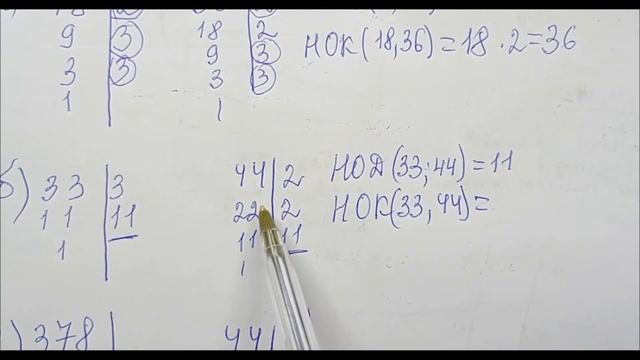 18 2
9 3 18 2
3 3 9 3
1 3 3
1
НОК(18,36)=18·2=36
б) 33 3 44 2 НОД(33;44)=11
11 11 22 2 НОК(33,44)=
1 11 11
1
) 378 44